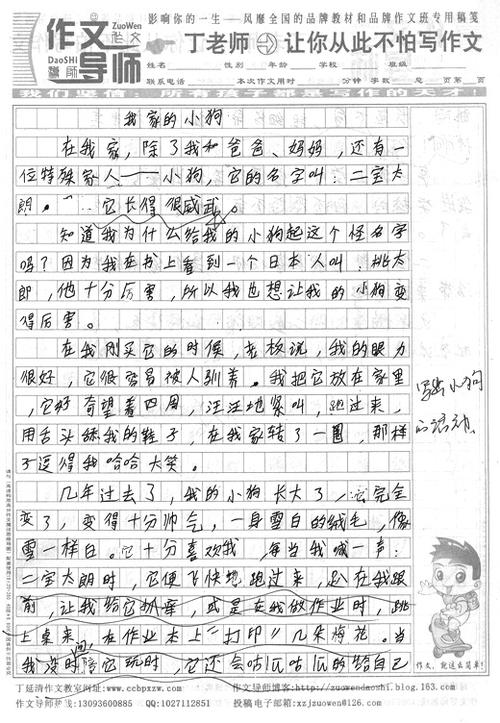 作文 ZuoWen 作文
DaoShi 导师 导师
影响你的一生——风靡全国的品牌教材和品牌作文班专用稿笺
丁老师 让你从此不怕写作文
姓名 性别 年龄 学校 班级
联系电话 本次作文用时 分钟 字数 总 页第 页
我们坚信：所有孩子都是写作的天才！
我家的小狗
在我家，除了我和爸爸、妈妈，还有一
位特殊家人——小狗，它的名字叫：二宝太
朗。它长得很威武。
知道我为什么给我的小狗起这个怪名字
吗？因为我在书上看到一个日本人叫：桃太
郎，他十分厉害，所以我也想让我的小狗变
得厉害。
在我刚买它的时候，老板说，我的眼力
很好，它很容易被人驯养。我把它放在家里
，它好奇望着四周，汪汪地紧叫，跑过来，
用舌头舔我的鞋子，在我家转了一圈，那样
子逗得我哈哈大笑。
写出小狗
的活动。
几年过去了，我的小狗长大了，完全
变了，变得十分帅气，一身雪白的绒毛，像
雪一样白。它十分喜欢我，每当我喊一声：
二宝太朗时，它便飞快地跑过来，趴在我跟
前，让我给它抓痒，或是在我做作业时，跳
上桌来，在作业本上“打印”几朵梅花。当
我没时间陪它玩时，它还会咕瓜咕瓜的给自己
作文，就这么简单！
丁延清作文教室网址：www.ccbpxzw.com 作文导师博客：http://zuowendaoshi.blog.163.com
作文导师热线：13093600885 QQ：1027112851 投稿电子邮箱：xzjzuowen@126.com